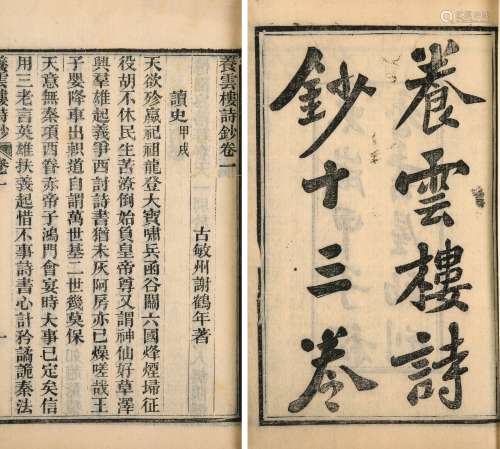 養雲樓詩
鈔十三卷
養雲樓詩鈔卷一
古敏州謝鶴年著
讀史 甲戌
天欲殄嬴祀祖龍登大寶嘯兵函谷關六國烽煙埽征
役胡不休民生苦潦倒始負皇帝尊又謂神仙好草澤
興羣雄起義爭西討詩書猶未灰阿房亦已燥嗟哉王
子嬰降車出軹道自謂萬世基二世幾莫保
天意無秦項西眷亦帝子鴻門會宴時大事已定矣信
用三老言英雄扶義起惜不事詩書心計矜譎詭秦法
養雲樓詩鈔 卷一
一